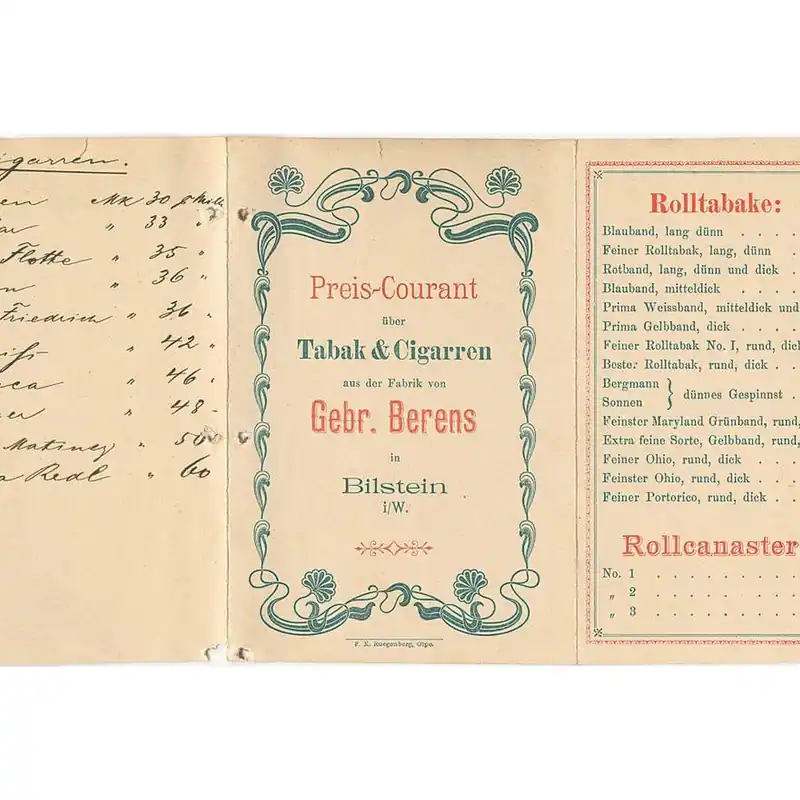 igarren.
en Mk 30 p Mille
ar " 33 "
Flotte " 35 "
n " 36 "
Friedrich " 36 "
" 42 "
ca " 46 "
er " 48 -
Matinez " 50
a Redl " 60
Preis-Courant
über
Tabak & Cigarren
aus der Fabrik von
Gebr. Berens
in
Bilstein
i/W.
F. X. Ruegenberg, Olpe.
Rolltabake:
Blauband, lang dünn . . . .
Feiner Rolltabak, lang, dünn .
Rotband, lang, dünn und dick .
Blauband, mitteldick . . . .
Prima Weissband, mitteldick und
Prima Gelbband, dick . . . .
Feiner Rolltabak No. I, rund, dick
Bester Rolltabak, rund, dick . .
Bergmann
Sonnen } dünnes Gespinnst .
Feinster Maryland Grünband, rund,
Extra feine Sorte, Gelbband, rund,
Feiner Ohio, rund, dick . . . .
Feinster Ohio, rund, dick . . . .
Feiner Portorico, rund, dick . . .
Rollcanaster
No. 1 . . . . . . . .
" 2 . . . . . . . .
" 3 . . . . . . . .